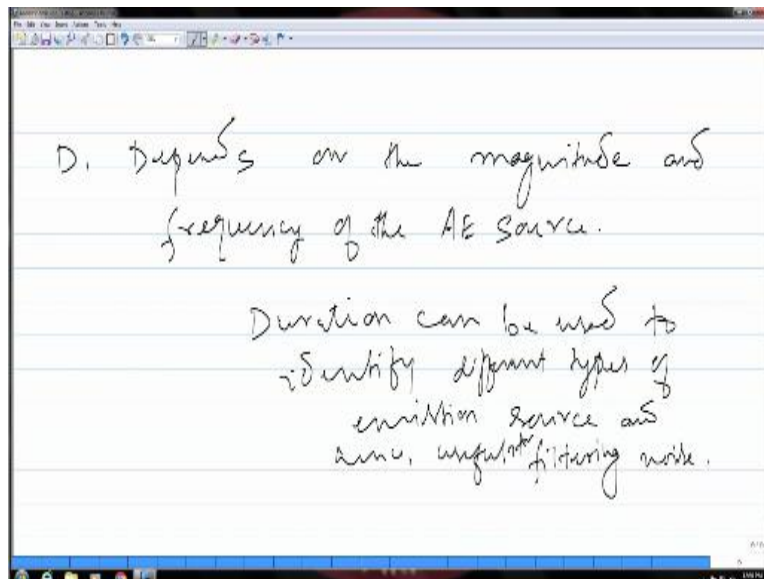 D. Depends on the magnitude and
frequency of the AE source.
Duration can be used to
identify different types of
emission source and
useful for filtering noise.